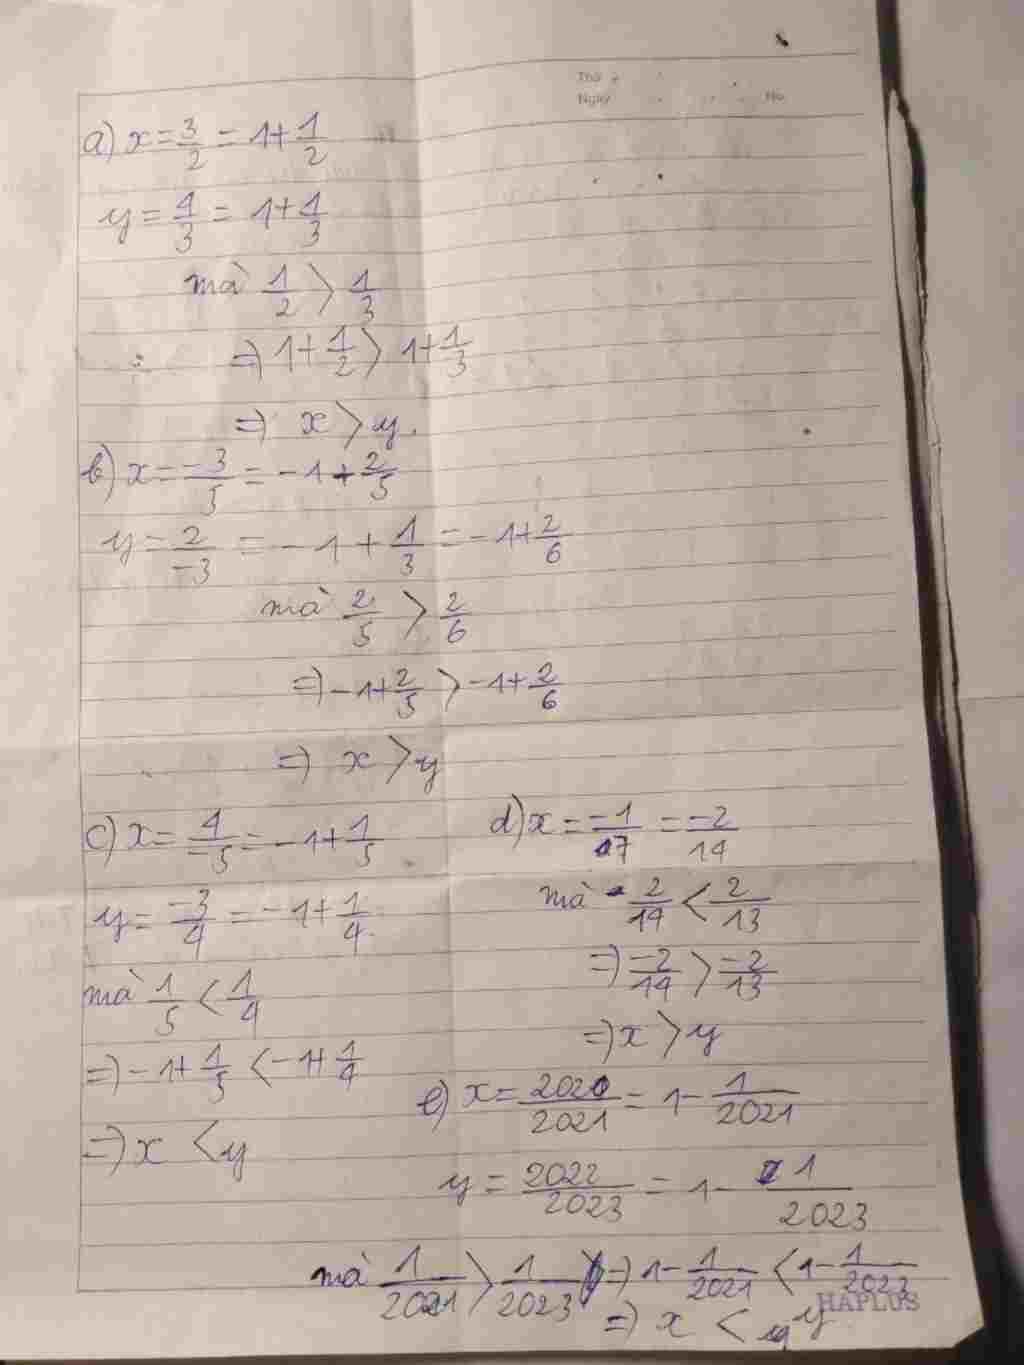 Thứ
Ngày No
a) x = 3/2 = 1 + 1/2
y = 4/3 = 1 + 1/3
mà 1/2 > 1/3
=> 1 + 1/2 > 1 + 1/3
=> x > y.
b) x = -3/5 = -1 + 2/5
y = 2/-3 = -1 + 1/3 = -1 + 2/6
mà 2/5 > 2/6
=> -1 + 2/5 > -1 + 2/6
=> x > y
c) x = 4/-5 = -1 + 1/5
y = -3/4 = -1 + 1/4
mà 1/5 < 1/4
=> -1 + 1/5 < -1 + 1/4
=> x < y
d) x = -1/7 = -2/14
mà 2/14 < 2/13
=> -2/14 > -2/13
=> x > y
e) x = 2020/2021 = 1 - 1/2021
y = 2022/2023 = 1 - 1/2023
mà 1/2021 > 1/2023 => 1 - 1/2021 < 1 - 1/2023
=> x < y
HAPLUS